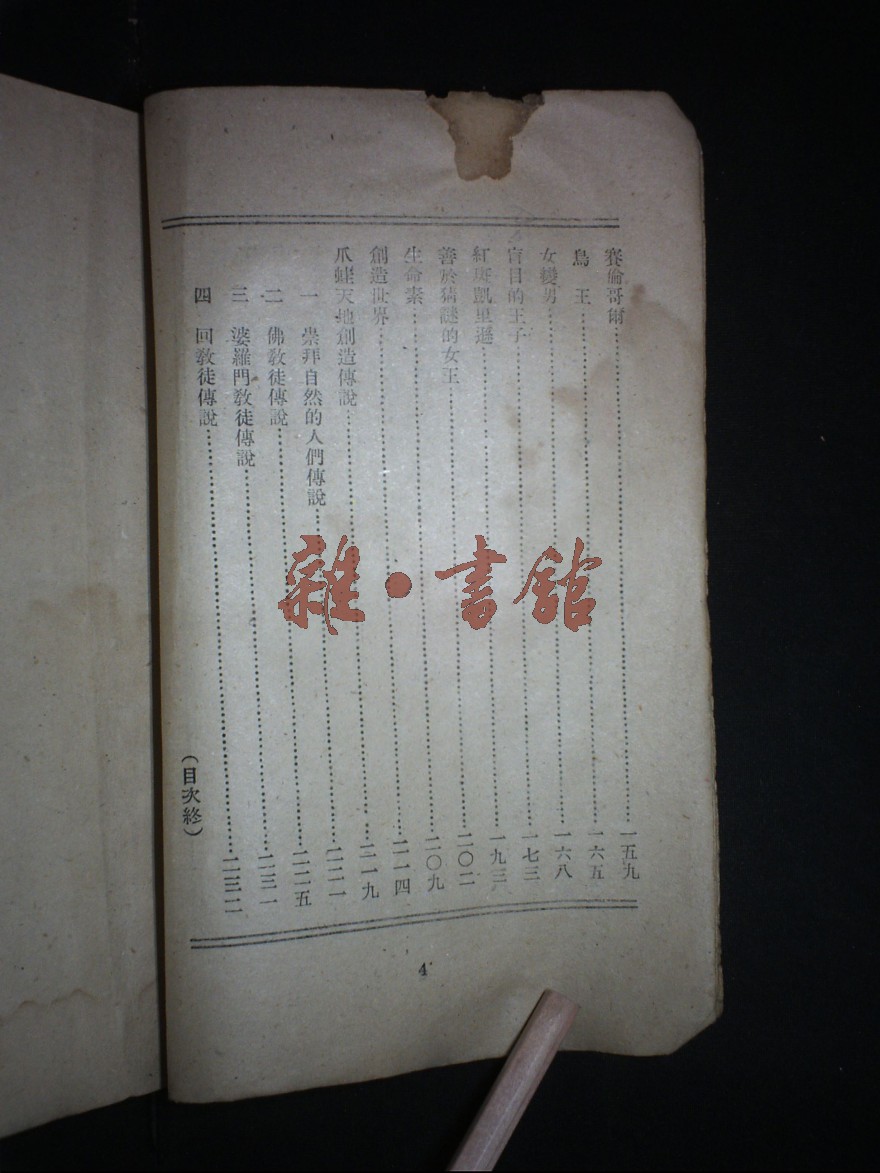 賽倫哥爾……一五九
鳥　王……一六五
女變男……一六八
盲目的王子……一七三
紅凱里……一九三
善於猜謎的女王……二〇二
生命素……二〇九
創造世界……二一四
爪蛙天地創造傳說……二一九
一　崇拜自然的人們傳說……二二一
二　佛教徒傳說……二二五
三　婆羅門教徒傳說……二三一
四　回教徒傳說……二三二
（目次終）
4
雜·書館